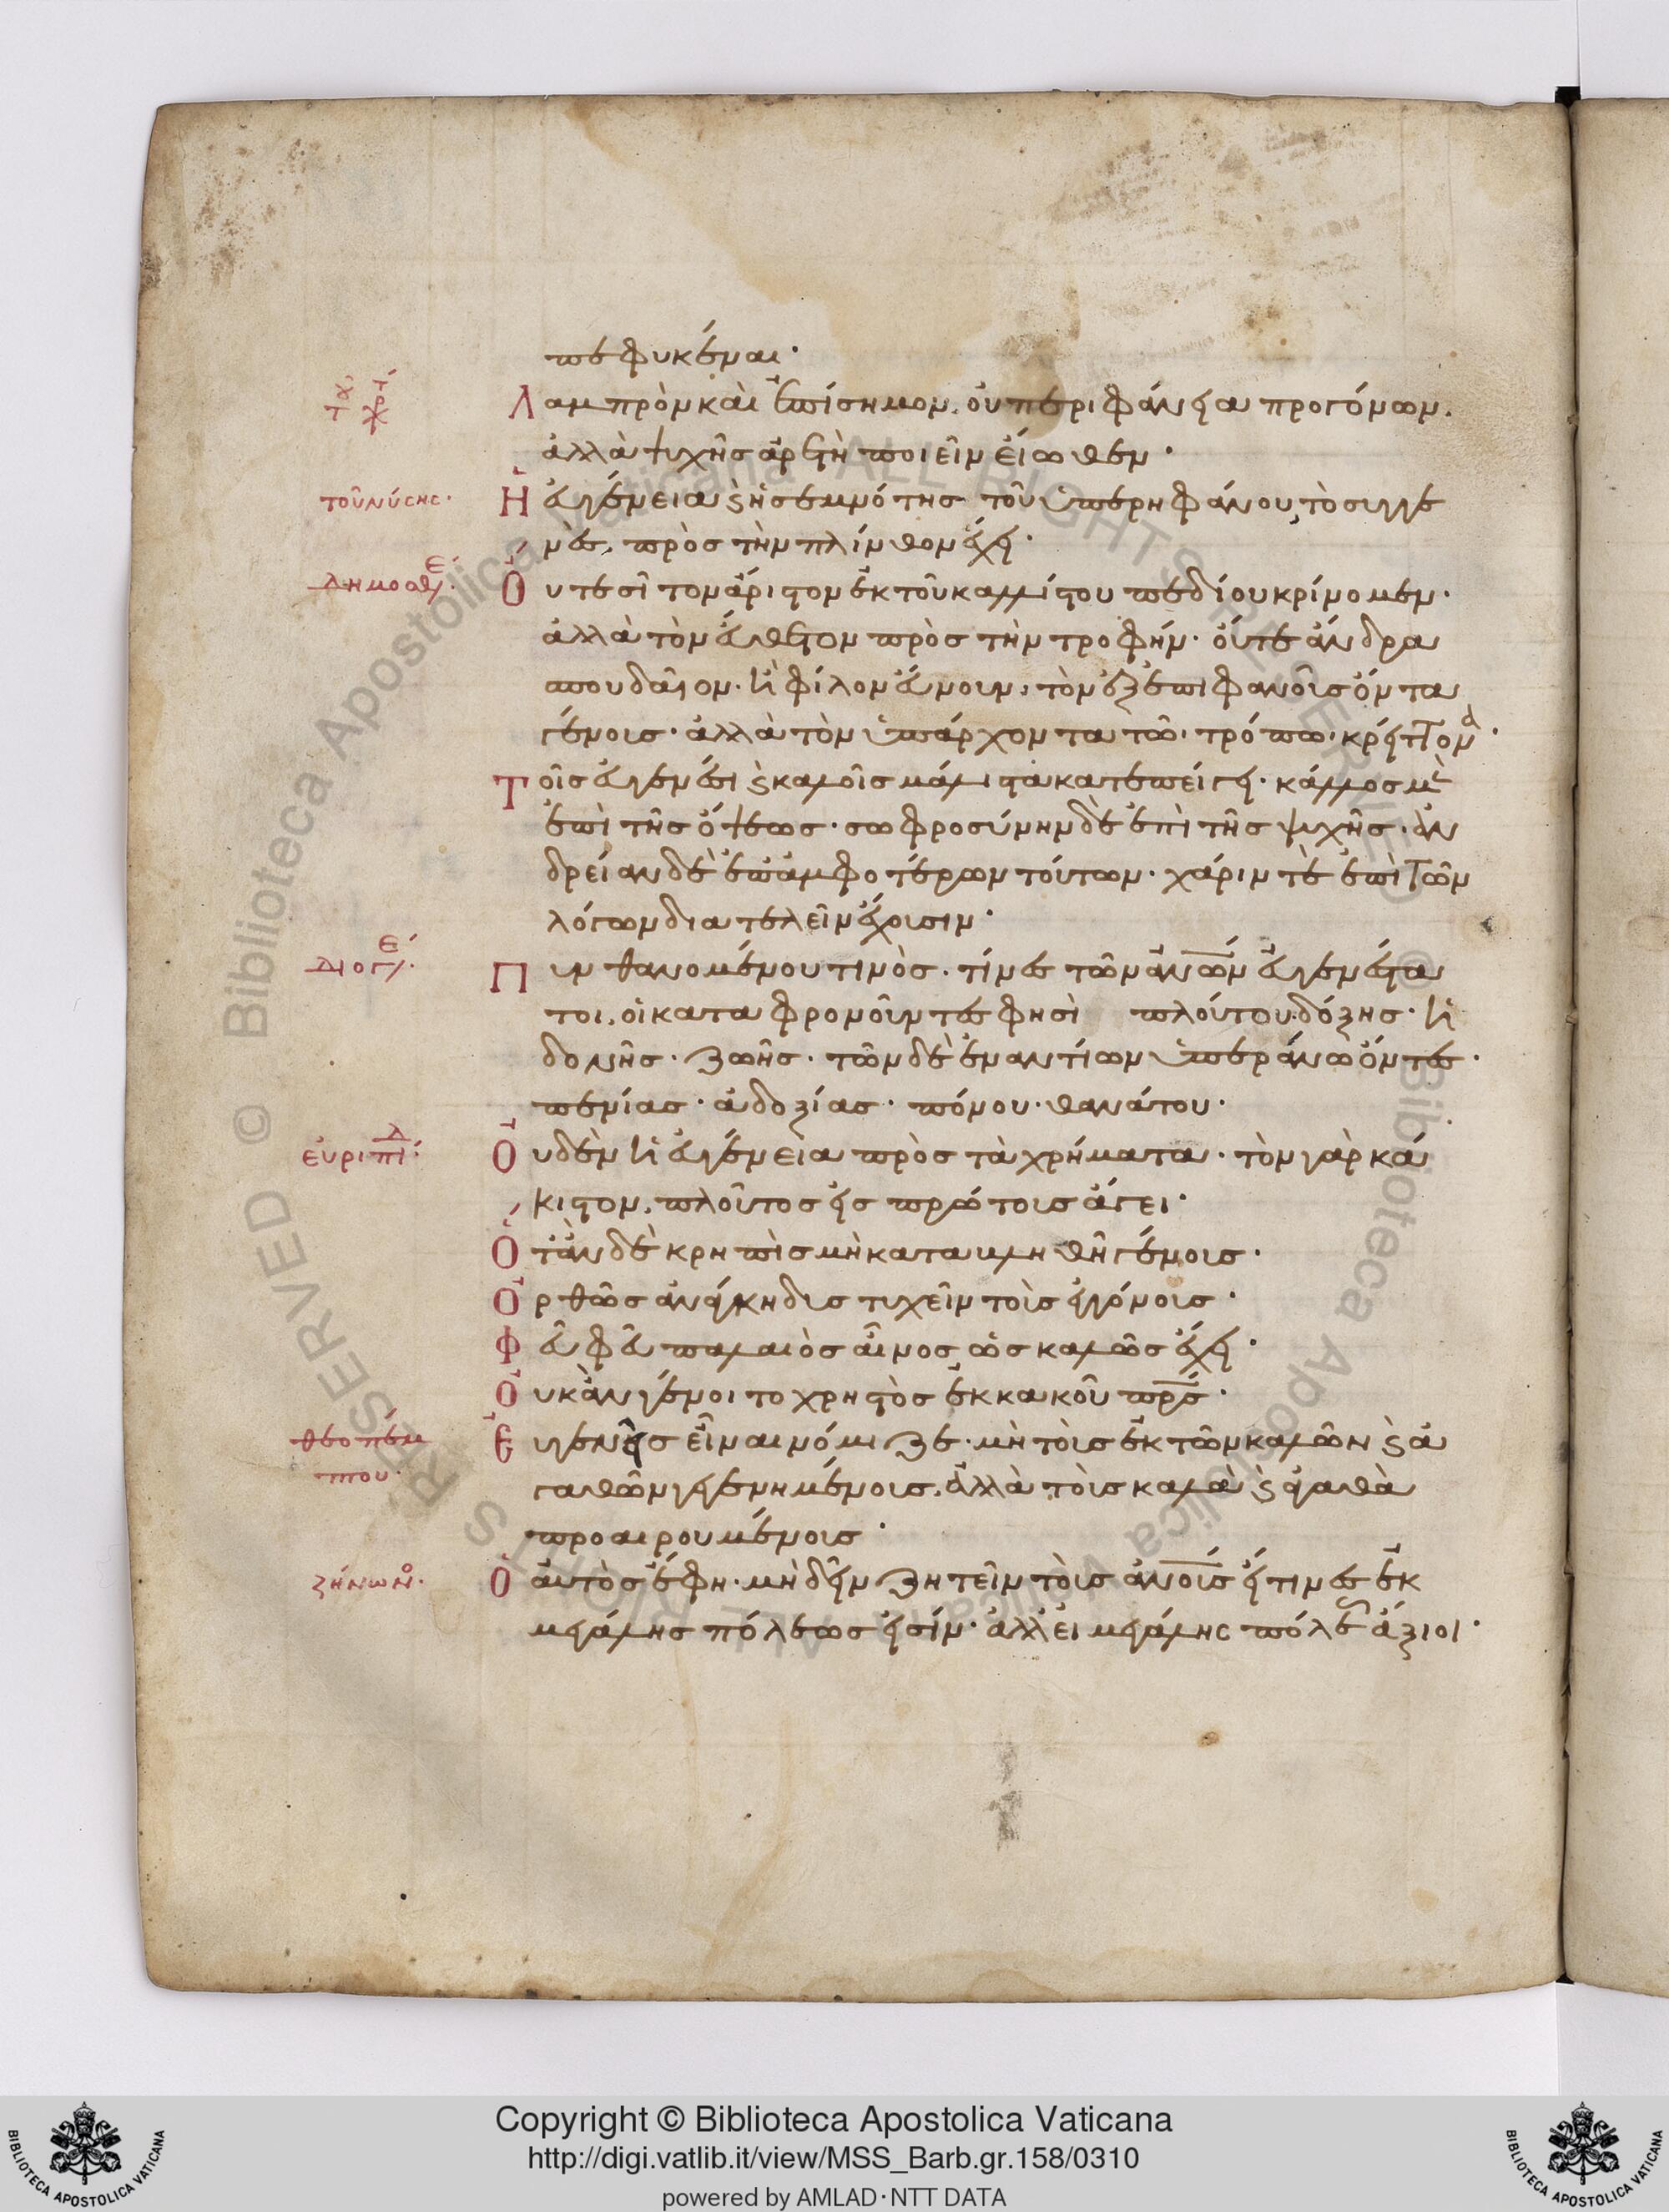 πεφυκέναι·
τ χ ρ τ
Λαμπρὸν καὶ ἐπίσημον, οὐ περιφάνεια προγόνων,
ἀλλὰ ψυχῆς ἀρετὴ ποιεῖν εἴωθεν·
τοῦ νύσης·
Ἡ εὐγένεια ϗ ἡ σεμνότης τοῦ ὑπερηφάνου, τὸ συγγε
νὲς, πρὸς τὴν πλίνθον ἔχει·
Δημοσθε·
Οὔτε σῖτον ἄριστον ἐκ τοῦ καλλίστου πεδίου κρίνομεν·
ἀλλὰ τὸν εὔθετον πρὸς τὴν τροφήν· οὔτε ἄνδρα
σπουδαῖον· ἢ φίλον εὔνουν, τὸν ἐξ ἐπιφανοῖς ὄντα
γένοις· ἀλλὰ τὸν ὑπάρχοντα τῶ τρόπω κρείττονα·
Τοῖς εὐγενέσι ϗ καλοῖς μάλιστα κατεπείγει· κάλλος μὲν
ἐπὶ τῆς ὄψεως· σωφροσύνην δὲ ἐπὶ τῆς ψυχῆς· ἀν
δρείαν δὲ ἐπ' ἀμφοτέρων τούτων· χάριν τὲ ἐπὶ τῶν
λόγων διατελεῖν ἔχουσιν·
Διογε·
Πυνθανομένου τινὸς· τίνες τῶν ἀνων εὐγενέστα
τοι, οἱ καταφρονοῦντες φησὶ πλούτου· δόξης· ἡ
δονῆς· ζωῆς· τῶν δὲ ἐναντίων ὑπεράνω ὄντες·
πενίας· ἀδοξίας· πόνου· θανάτου·
εὐριπιδ·
Οὐδὲν ἡ εὐγένεια πρὸς τὰ χρήματα· τὸν γὰρ κά
κιστον, πλοῦτος εἰς πρώτους ἄγει·
Ὅταν δὲ κρηπὶς μὴ καταβληθῆ γένοις·
Ὀρθῶς ἀνάγκη δυστυχεῖν τοὺς ἐκγόνοις·
Φεῦ φεῦ παλαιὸς αἶνος ὡς καλῶς ἔχει·
Οὐκ ἂν γένοιτο χρηστὸς ἐκ κακοῦ πρς·
θεοπέμ
που·
Εὐγενεῖς εἶναι νόμιζε· μὴ τοὺς ἐκ τῶν καλῶν ϗ ἀ
γαθῶν γεγενημένοις, ἀλλὰ τοὺς καλὰ ϗ ἀγαθὰ
προαιρουμένοις·
ζήνωνο·
Ὁ αὐτὸς ἔφη· μὴ δεῖν ζητεῖν τοὺς ἀνους εἴτινες ἐκ
μεγάλης πόλεως εἰσίν· ἀλλ' εἰ μεγάλης πόλεως ἄξιοι·
Copyright © Biblioteca Apostolica Vaticana
http://digi.vatlib.it/view/MSS_Barb.gr.158/0310
powered by AMLAD·NTT DATA
BIBLIOTECA APOSTOLICA VATICANA
BIBLIOTECA APOSTOLICA VATICANA